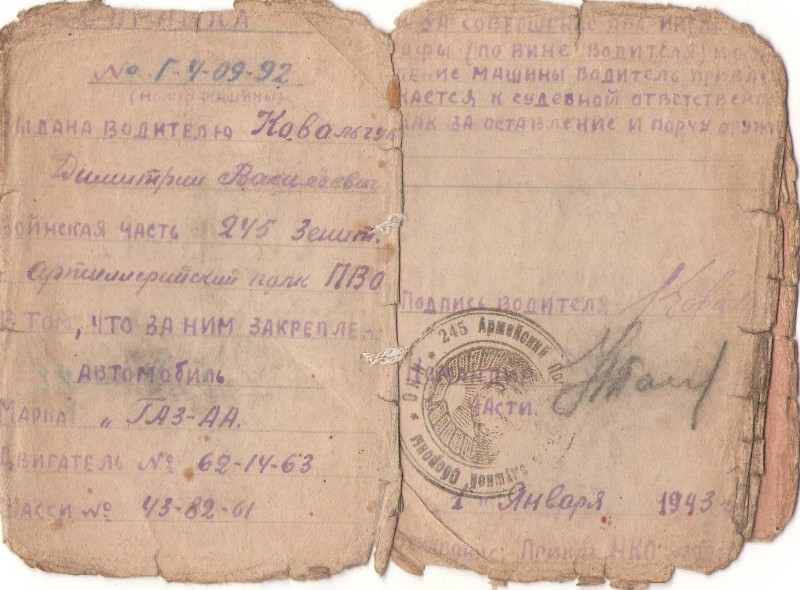 № Г-4-09-92
(номер машины)
ВЫДАНА ВОДИТЕЛЮ Ковальчук
Димитрий Васильевич
ВОЙНСКАЯ ЧАСТЬ 245 Зенит.
Артиллерийский полк ПВО
В ТОМ, ЧТО ЗА НИМ ЗАКРЕПЛЕН
АВТОМОБИЛЬ
МАРКА „ ГАЗ-АА.
ДВИГАТЕЛЬ № 62-14-63
ШАССИ № 43-82-61
ЗА СОВЕРШЕНИЕ
(ПО ВИНЕ ВОДИТЕЛЯ)
МАШИНЫ ВОДИТЕЛЬ
К СУДЕБНОЙ
КАК ЗА ОСТАВЛЕНИЕ И ПОРЧУ
ПОДПИСЬ ВОДИТЕЛЯ
245 Армейский
Обороны
ЧАСТИ.
1 „ Января 1943 г
НКО